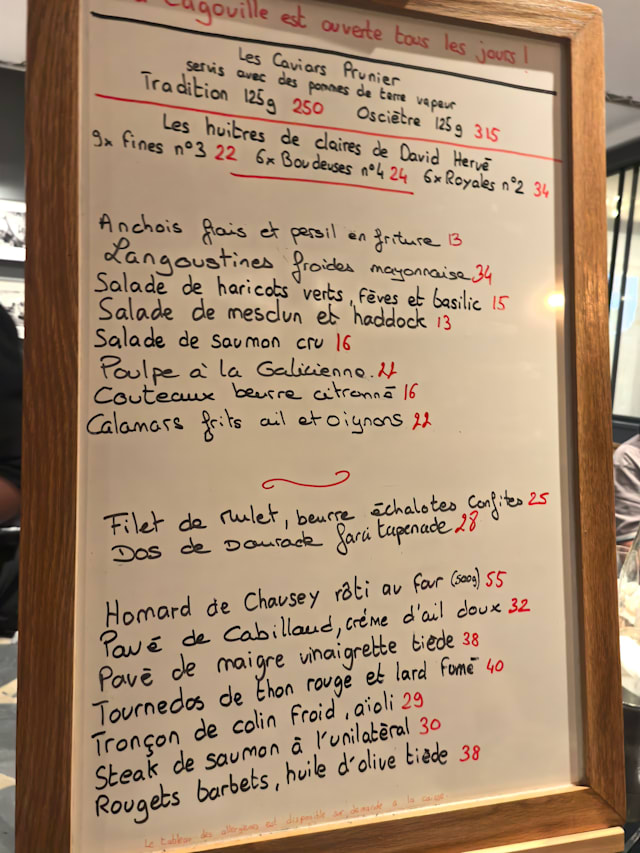 Cagouille est ouverte tous les jours !
Les Caviars Prunier
servis avec des pommes de terre vapeur
Tradition 125g 250 Osciètre 125g 315
Les huîtres de claires de David Hervé
9x Fines n°3 22 6x Boudeuses n°4 24 6x Royales n°2 34
Anchois frais et persil en friture 13
Langoustines froides mayonnaise 34
Salade de haricots verts, fèves et basilic 15
Salade de mesclun et haddock 13
Salade de saumon cru 16
Poulpe à la Galicienne. 21
Couteaux beurre citronné 16
Calamars frits ail et oignons 22
Filet de mulet, beurre échalotes confites 25
Dos de Daurade farci tapenade 28
Homard de Chausey rôti au four (500g) 55
Pavé de Cabillaud, crème d'ail doux 32
Pavé de maigre vinaigrette tiède 38
Tournedos de thon rouge et lard fumé 40
Tronçon de colin froid, aïoli 29
Steak de saumon à l'unilatéral 30
Rougets barbets, huile d'olive tiède 38
Le tableau des allergènes est disponible sur demande à la caisse